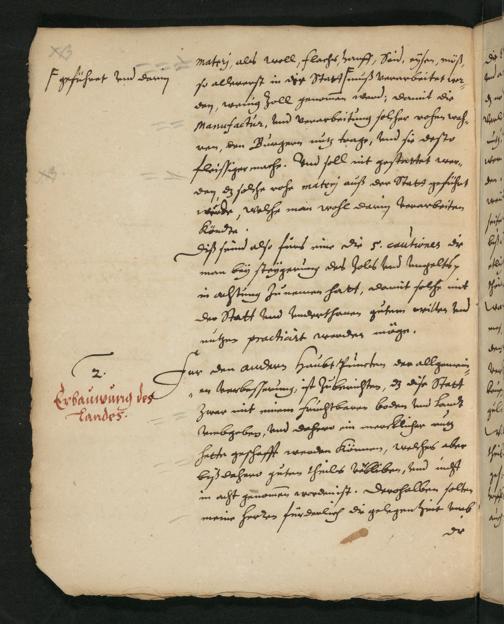 matery als woll, flachs, hanff, Seid, eysen, möß,
geführet und darin
so allererst in der Statt muß verarbeitet wer-
den, wenig Zoll genommen werd; damit die
Manufactur, und verarbeitung solcher rohen wah-
ren, den Burgern nutz trage, und sie desto
fleissiger mache. Und soll nit gestattet wer-
den, dz solche rohe matery auß der Statt geführt
würde, welche man wohl darin verarbeiten
köndte.
Diß seind also fürs eine die 5. cautiones die
man bey steigerung des Zols und Umgelts,
in achtung Zunemen hatt, damit solche mit
der Statt und Underthanen gutem willen und
nutzen practicirt werden möge.
2.
Erbauwung des
Landes.
Für den andern Haubt Puncten der allgemei-
en verbesserung, ist Zuberichten, dz dise Statt
Zwar mit einem fruchtbaren boden und Landt
umbgeben, und dahero ein mercklicher nutz
hette geschafft werden können, welches aber
biß dahero guten theils verbliben, und nicht
in acht genommen worden ist. Derohalben solten
meine Herren fürderlich die gelegenheit umb
die